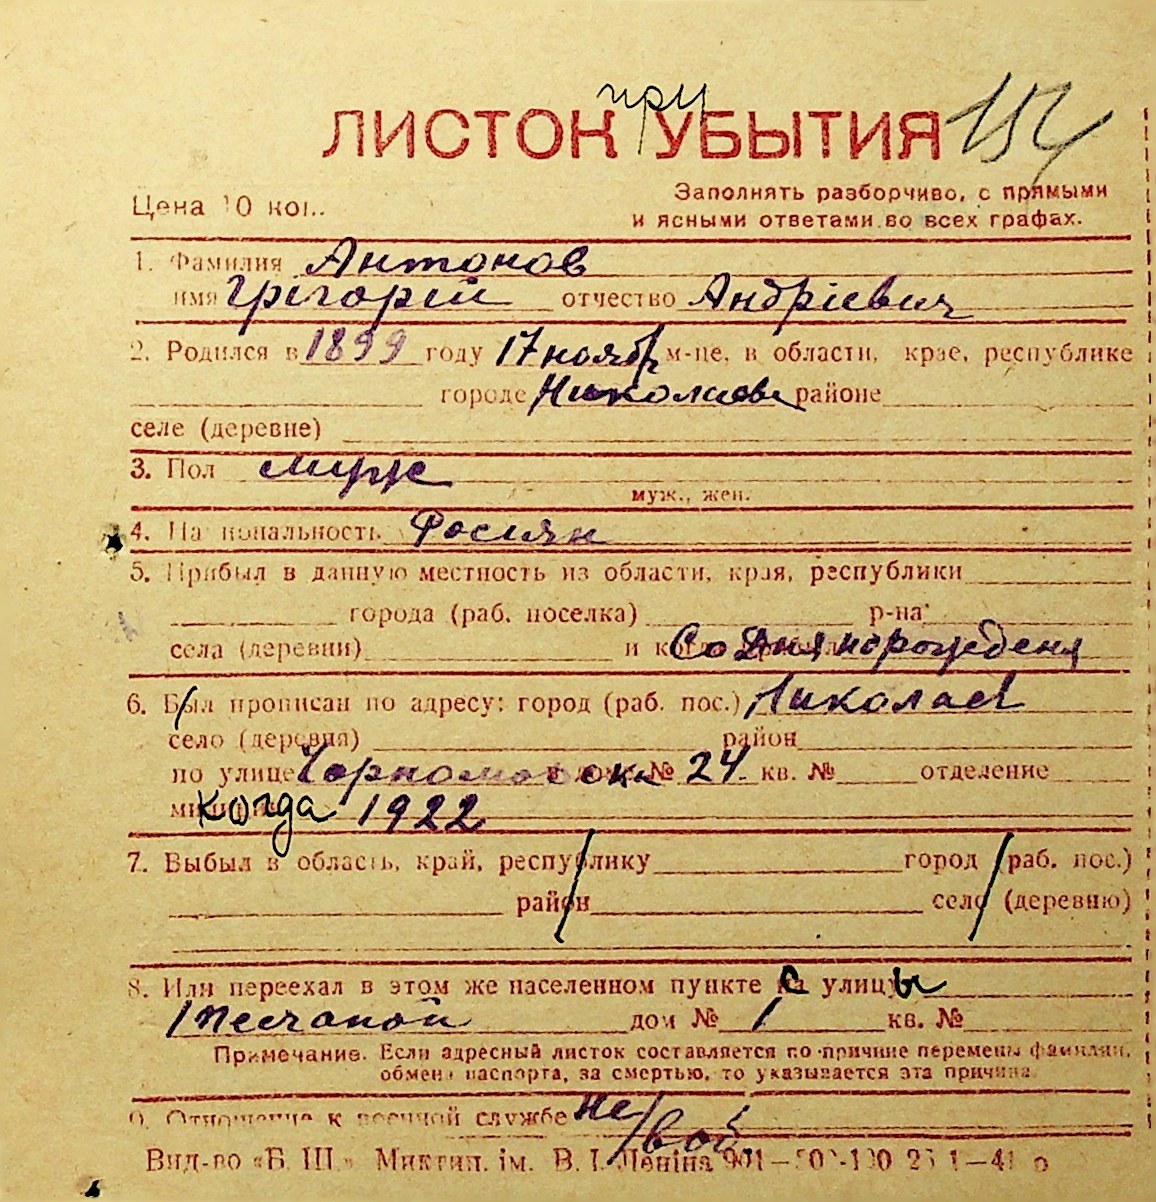 при
ЛИСТОК УБЫТИЯ 154
Цена 10 коп.
Заполнять разборчиво, с прямыми
и ясными ответами во всех графах.
1. Фамилия Антонов
имя Грігорій отчество Андріевич
2. Родился в 1899 году 17 ноябр м-це, в области, крае, республике
городе Николаеве районе
селе (деревне)
3. Пол мужс
муж., жен.
4. Национальность Росиян
5. Прибыл в данную местность из области, края, республики
города (раб. поселка) р-на
села (деревни) и ког Со Дня нарожденя
6. Был прописан по адресу: город (раб. пос.) Николаев
село (деревня) район
по улице Чорноморская № 24 кв. № отделение
когда 1922
7. Выбыл в область, край, республику город (раб. пос.)
район село (деревню)
8. Или переехал в этом же населенном пункте с улицы
Песчаной дом № 1 кв. №
Примечание. Если адресный листок составляется по причине перемены фамилии,
обмена паспорта, за смертью, то указывается эта причина.
9. Отношение к военной службе не/вой
Вид-во «Б. Ш.» Миктип. ім. В. І. Леніна